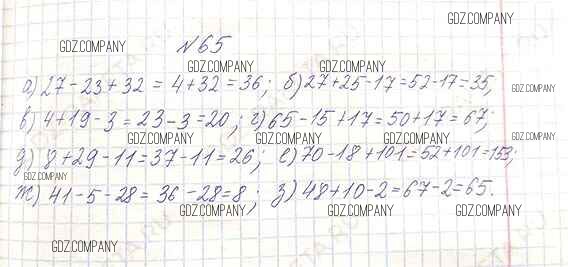 GDZ.COMPANY
№ 65
GDZ.COMPANY
GDZ.COMPANY GDZ.COMPANY
а) 27-23+32 = 4+32 = 36; б) 27+25-17=52-17=35,
GDZ.COMPANY
в) 4+19-3=23-3=20; г) 65-15+17=50+17=67;
GDZ.COMPANY GDZ.COMPANY GDZ.COMPANY GDZ.COMPANY
д) 8+29-11=37-11=26; е) 70-18+101=52+101=153;
GDZ.COMPANY
ж) 41-5-28=36-28=8; з) 48+10-2=67-2=65.
GDZ.COMPANY GDZ.COMPANY GDZ.COMPANY
GDZ.COMPANY